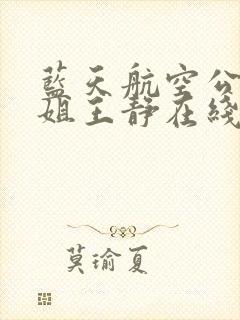 藍天航空公
姐王靜在綫
莫瑜夏